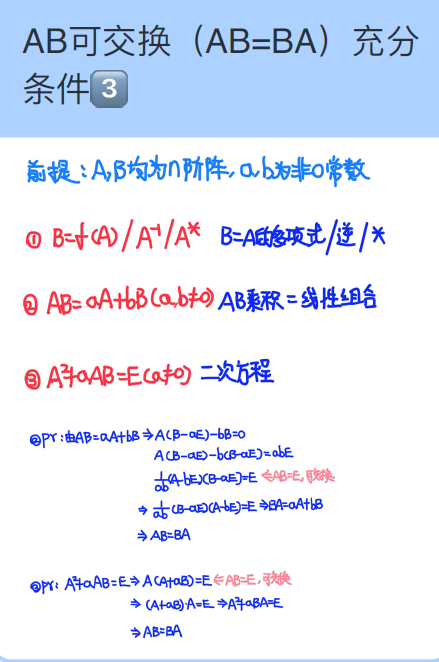 AB可交换（AB=BA）充分
条件3️⃣
前提:A,B均为n阶阵,a,b为非0常数
① B=f(A)/A⁻¹/A* B=A的多项式/逆/*
② AB=aA+bB(a,b≠0) AB乘积=线性组合
③ A²+aAB=E(a≠0) 二次方程
②pr:由AB=aA+bB⇒A(B-aE)-bB=0
A(B-aE)-b(B-aE)=abE
1/ab(A-bE)(B-aE)=E ⇐AB=E,可交换
⇒ 1/ab (B-aE)(A-bE)=E ⇒BA=aA+bB
⇒ AB=BA
③pr: A²+aAB=E⇒A(A+aB)=E⇐AB=E,可交换
⇒ (A+aB)·A=E ⇒A²+aBA=E
⇒ AB=BA